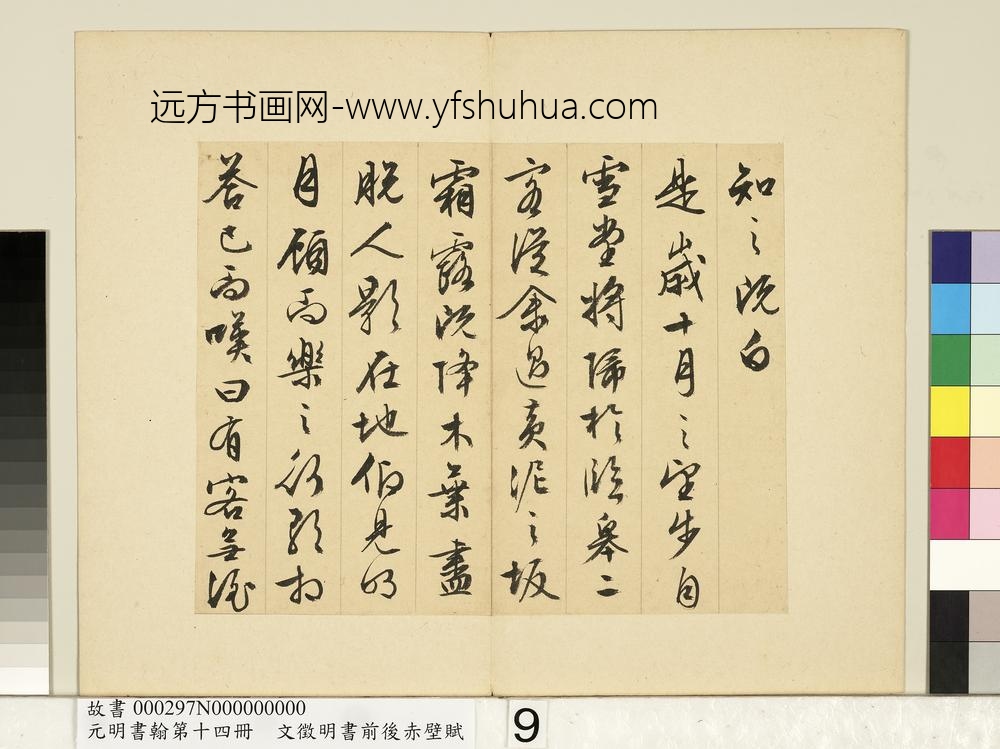 远方书画网-www.yfshuhua.com
知之既白
是歲十月之望步自
雪堂將歸於臨皋二
客從余過黃泥之坂
霜露既降木葉盡
脫人影在地仰見明
月顧而樂之行歌相
荅已而嘆曰有客無酒
故書 000297N000000000
元明書翰第十四冊 文徵明書前後赤壁賦
9